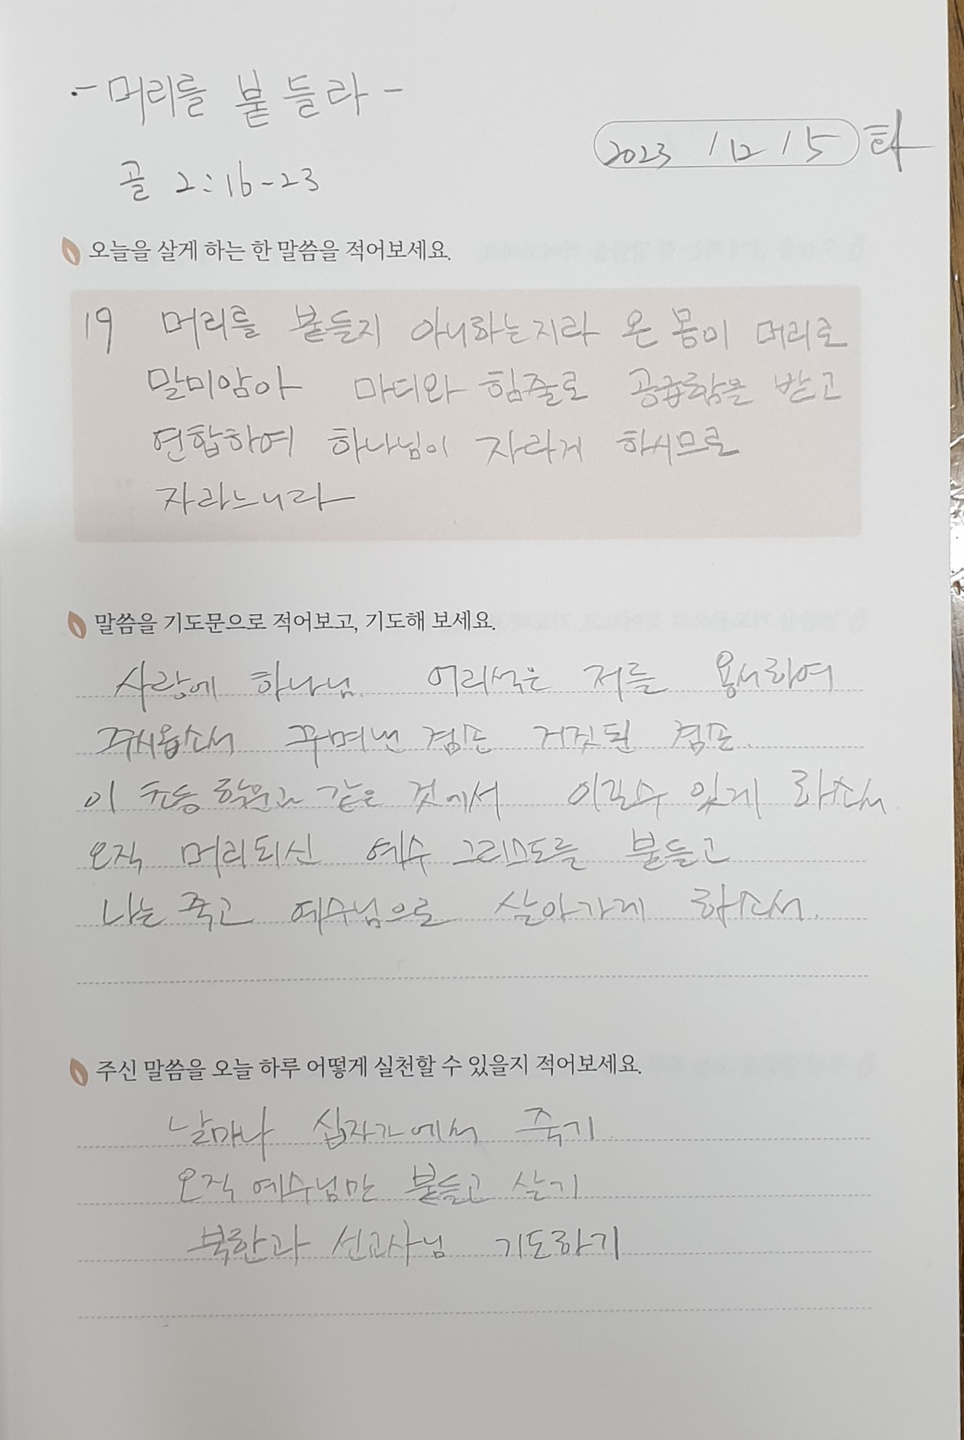 - 머리를 붙들라 -
2023 / 12 / 5 화
골 2:16-23
오늘을 살게 하는 한 말씀을 적어보세요.
19 머리를 붙들지 아니하는지라 온 몸이 머리로
말미암아 마디와 힘줄로 공급함을 받고
연합하여 하나님이 자라게 하시므로
자라느니라
말씀을 기도문으로 적어보고, 기도해 보세요.
사랑에 하나님 어리석은 저를 용서하여
주시옵소서 꾸며낸 겸손 거짓된 겸손
이 초등학문과 같은 것에서 이길수 있게 하소서
오직 머리되신 예수 그리스도를 붙들고
나는 죽고 예수님으로 살아가게 하소서.
주신 말씀을 오늘 하루 어떻게 실천할 수 있을지 적어보세요.
날마다 십자가에서 죽기
오직 예수님만 붙들고 살기
북한과 선교사님 기도하기